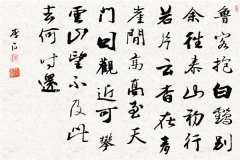 魯客抱白鷄别
余往泰山初行
若片云杳在青
崖間高高至天
門日觀近可攀
雲山望不及此
去何时還